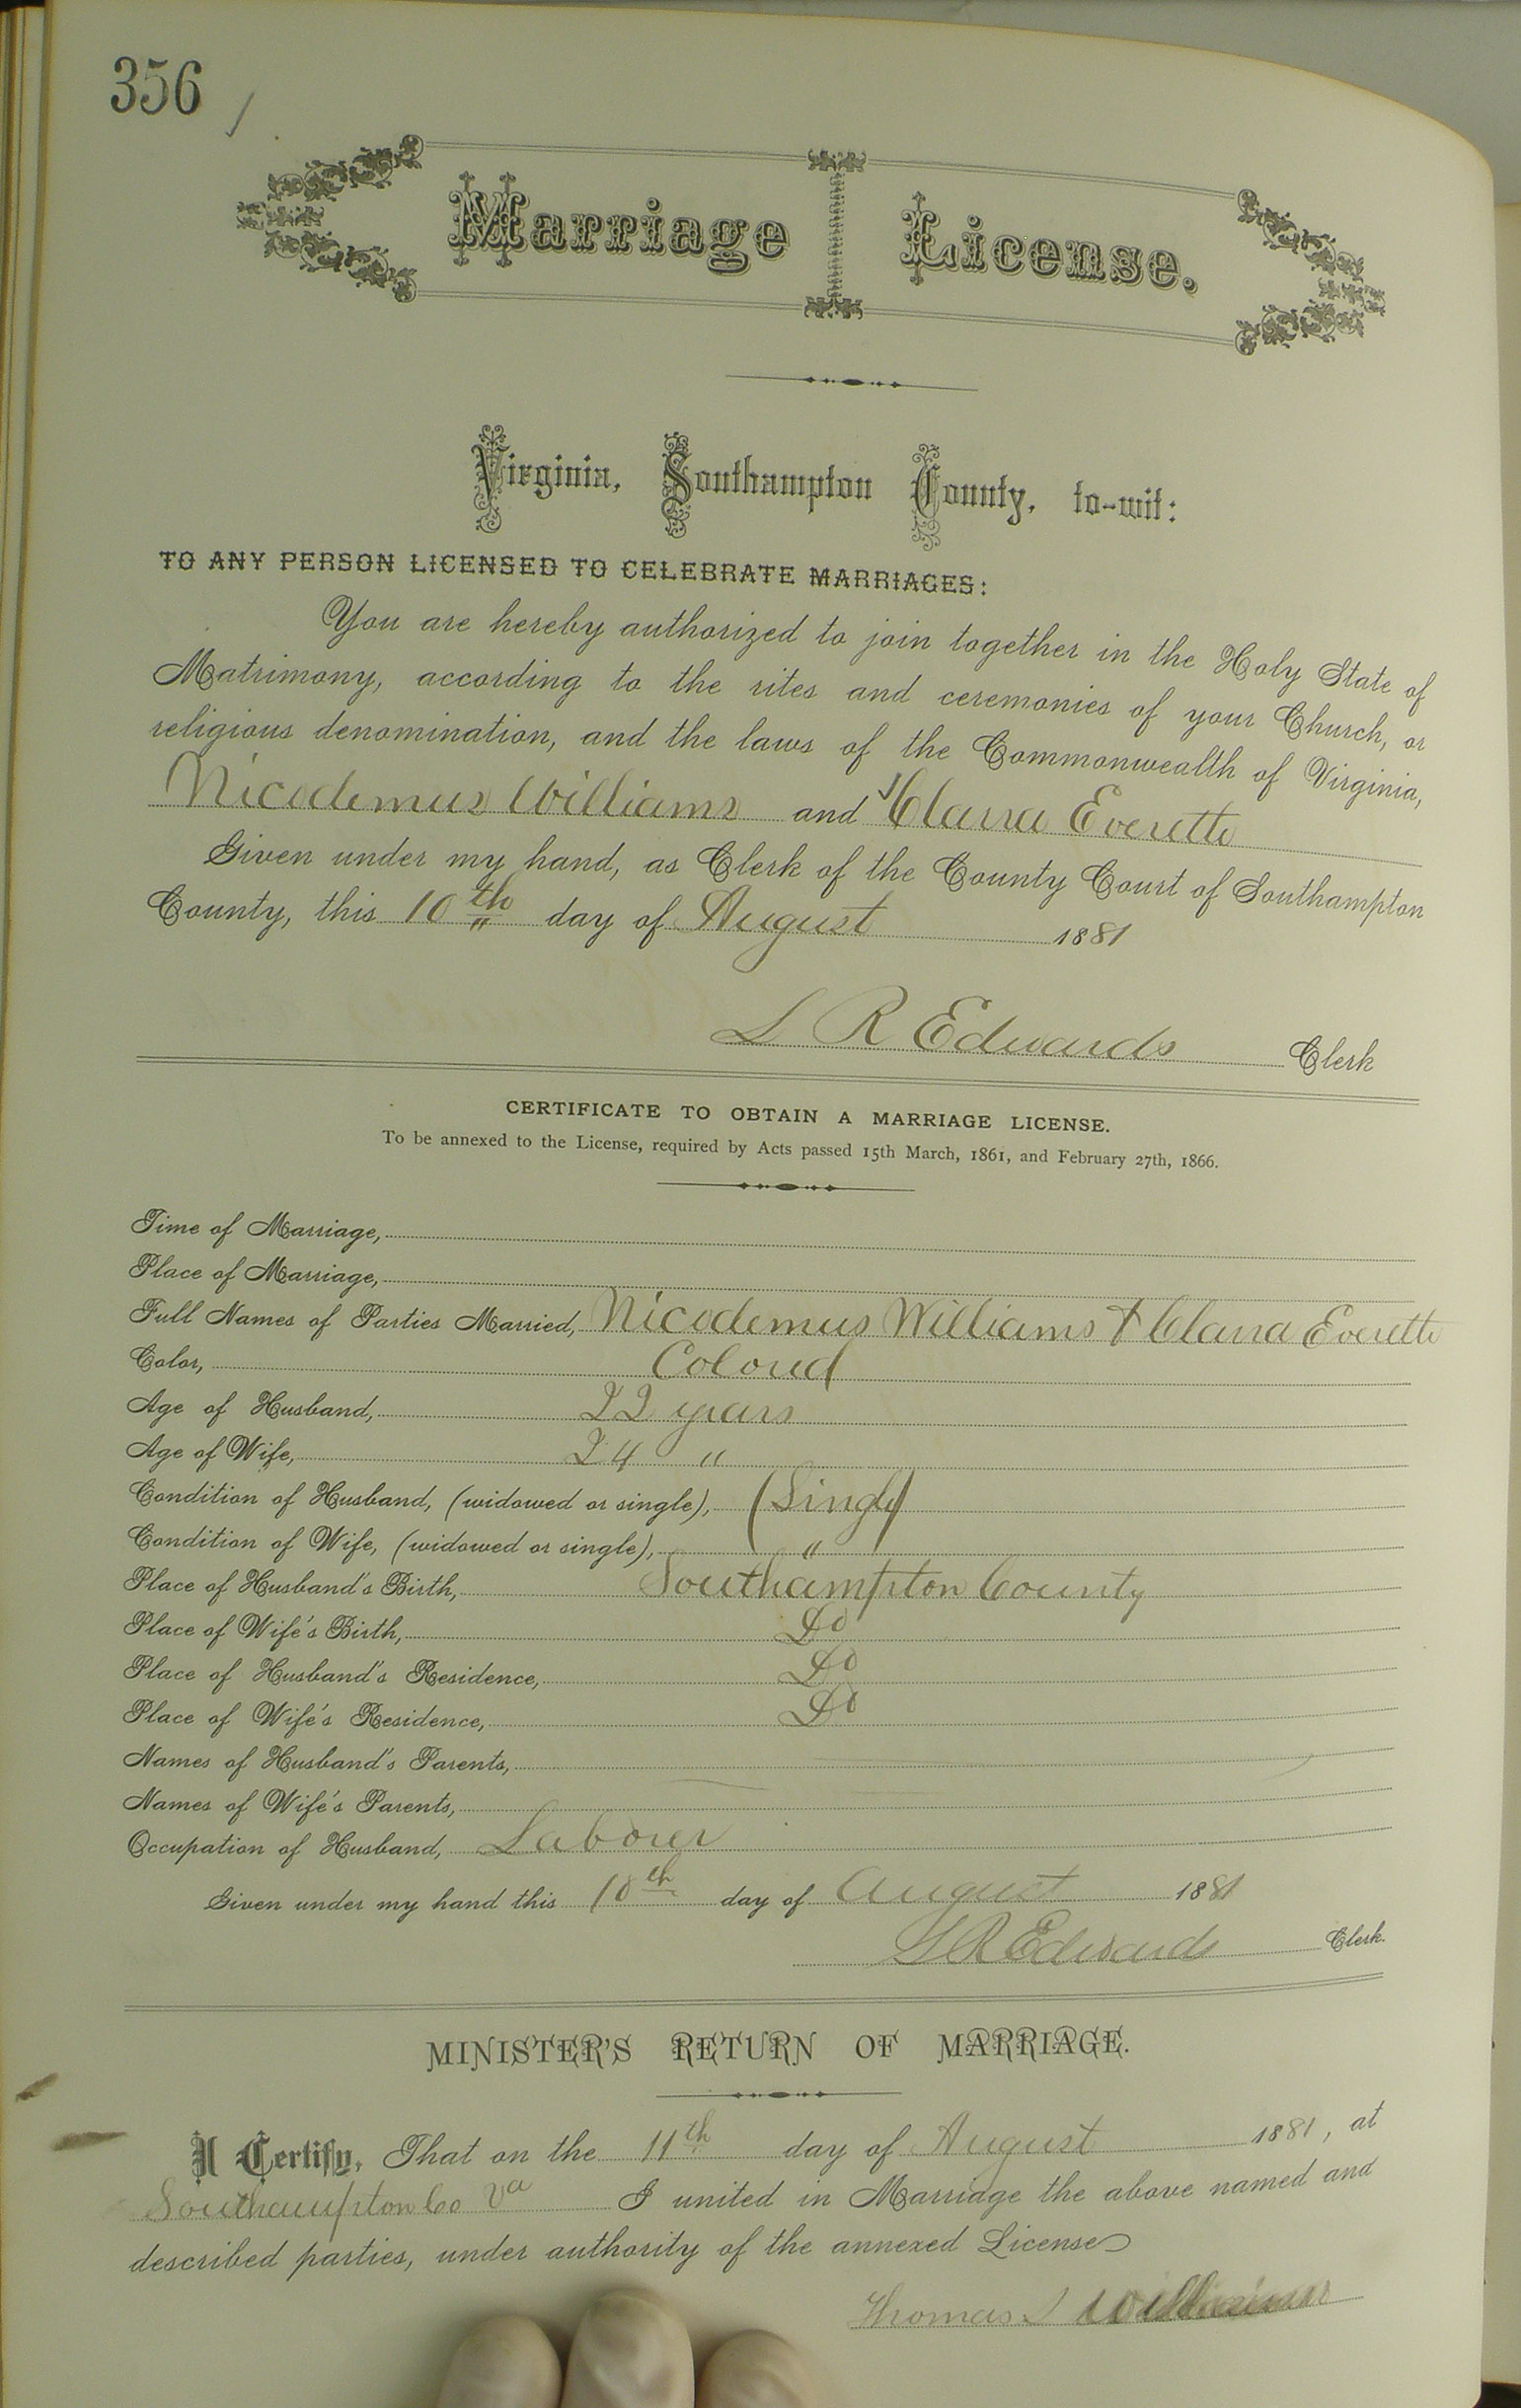 356
Marriage License.
Virginia, Southampton County, to-wit:
TO ANY PERSON LICENSED TO CELEBRATE MARRIAGES:
You are hereby authorized to join together in the Holy State of
Matrimony, according to the rites and ceremonies of your Church, or
religious denomination, and the laws of the Commonwealth of Virginia,
Nicodemus Williams and Clarra Everette
Given under my hand, as Clerk of the County Court of Southampton
County, this 10th day of August 1881
L R Edwards Clerk
CERTIFICATE TO OBTAIN A MARRIAGE LICENSE.
To be annexed to the License, required by Acts passed 15th March, 1861, and February 27th, 1866.
Time of Marriage,
Place of Marriage,
Full Names of Parties Married, Nicodemus Williams & Clarra Everette
Color, Colored
Age of Husband, 22 years
Age of Wife, 24 "
Condition of Husband, (widowed or single), (Single)
Condition of Wife, (widowed or single), "
Place of Husband's Birth, Southampton County
Place of Wife's Birth, Do
Place of Husband's Residence, Do
Place of Wife's Residence, Do
Names of Husband's Parents,
Names of Wife's Parents,
Occupation of Husband, Laborer
Given under my hand this 10th day of August 1881
L R Edwards Clerk.
MINISTER'S RETURN OF MARRIAGE.
I Certify, That on the 11th day of August 1881, at
Southampton Co Va I united in Marriage the above named and
described parties, under authority of the annexed License
Thomas